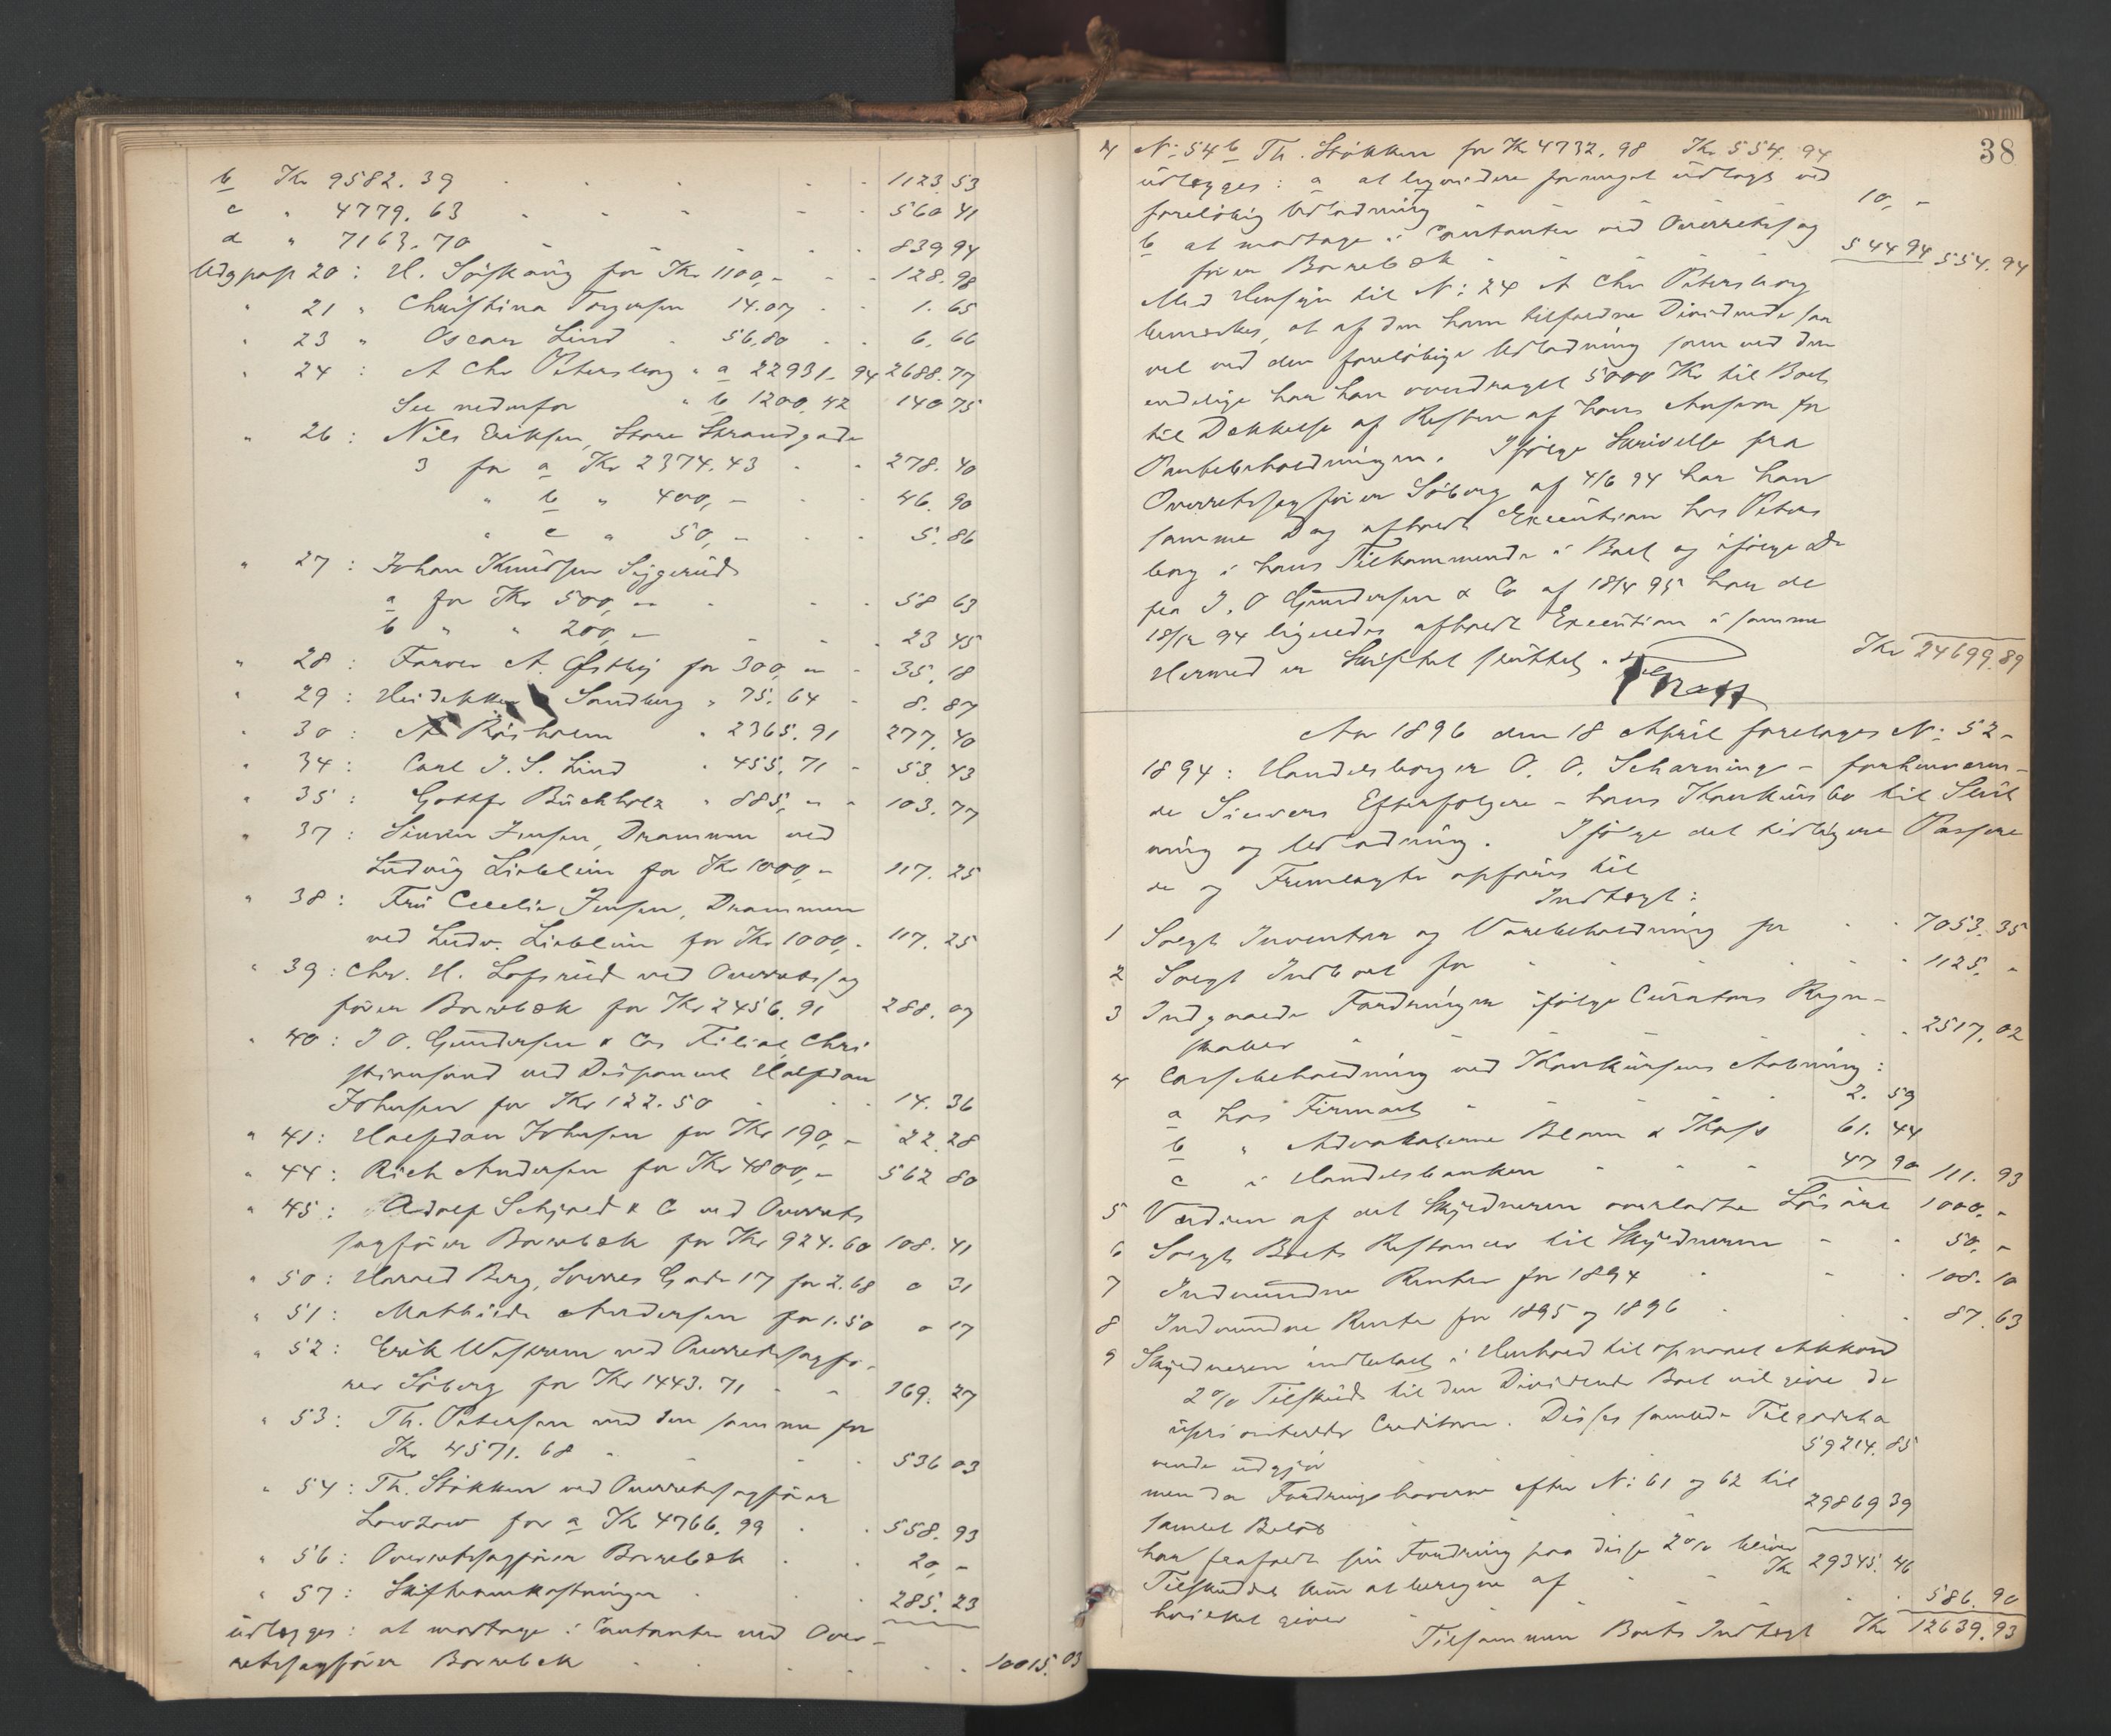 b Kr 9582.39 1123.53
c " 4779.63 560 41
d " 7163.70 839 94
Udg post 20: H. Söiskang for Kr 1100,- 128.98
" 21 " Christina Torgersen 14.07 1.65
" 23 " Oscar Lind 56,80 6.66
" 24: A Chr Petersborg " a 22931-94 2688.77
See nedenfor " b 1200,42 140 75
" 26: Nils Eriksen, Store Strandgade
3 for a Kr 2374.43 278.40
" b " 400,- 46.90
" c " 50,- 5.86
" 27: Johan Knudsen Siggerud
a for Kr 500,- 58 63
b " " 200,- 23 45
" 28: Farver A. Østbij for 300,- 35.18
" 29: Sandberg " 75.64 8.87
" 30: A Röisholm " 2365.91 277.40
" 34: Carl J. S. Lind " 455.71 53.43
" 35: Gottfr Buchholz " 885,- 103.77
" 37: Simen Jensen, Drammen ved
Ludvig Lieblein for Kr 1000,- 117.25
" 38: Fru Cecelie Jensen, Drammen
ved Ludv. Lieblein for Kr 1000,- 117.25
" 39: Chr. H. Lofsrud ved Overretssag
förer Borrebæk for Kr 2456.91 288.07
" 40: J O. Gundersen & Cos Filial, Chri
stiansund ved Disponent Halfdan
Johnsen for Kr 122.50 14.36
" 41: Halfdan Johnsen for Kr 190,- 22.28
" 44: Rich Andersen for Kr 4800,- 562 80
" 45: Adolf Schjveld & Co ved Overrets
sagförer Borrebæk for Kr 924.60 108.41
" 50: Harald Berg, Sverres Gade 17 for 2.68 0 31
" 51: Mathilde Andersen for 1.50 0 17
" 52: Erik Westrum ved Overretssagfö-
rer Söberg for Kr 1443.71 169.27
" 53: Th. Petersen ved den samme for
Kr 4571.68 536 03
" 54: Th. Stökken ved Overretssagförer
Lowzow for a Kr 4766.99 558.93
" 56: Overretssagförer Borrebæk 20,-
" 57: Skifteomkostninger 285.23
udlægges: at modtage i Contanter ved Over-
retssagförer Borrebæk 10015.03
38
4 No 54 b Th. Stökken for Kr 4732.98 Kr 554.94
udlægges: a at liqvidere forlods udlagt ved
foreløbig Udlodning 10,-
b at modtage i Contanter ved Overretssag
förer Borrebæk 544 94 554.94
Med Hensyn til No 24 A Chr Petersborg
bemærkes, at af den ham tilfaldne Dividende saa
vel ved den foreløbige Udlodning som ved den
endelige har han overdraget 5000 Kr til Boet
til Dækkelse af Resten af hans Ansvar for
Pantebeholdningen. Ifölge Skrivelse fra
Overretssagförer Söberg af 4/6 94 har han
samme Dag afholdt Execution hos Peters
borg i hans Tilkommende i Boet og ifölge do
fra J. O Gundersen & Co af 18/4 95 har de
18/12 94 ligeledes afholdt Execution i samme
Kr 24699.89
Hermed er Skiftet sluttet.
Aar 1896 den 18 April foretoges No 52-
1894: Handelsborger O. O. Scharning - forhenværen-
de Sievers Efterfølgere - hans Konkursbo til Slut
ning og Udlodning. Ifölge det tidligere Passere
de og Fremlagte opföres til
Indtægt:
1 Solgt Inventar og Varebeholdning for 7053.35
2 Solgt Indbo for 1125,-
3 Indgaaede Fordringer ifölge Curators Regn-
skaber 2517.02
4 Cassebeholdning ved Konkursens Aabning:
a hos Firmaet 2.59
b " Advokaterne Blom & Thoss 61.44
c i Handelsbanken 47 90 111.93
5 Værdien af det Skyldneren overladte Lösöre 1000,-
6 Solgt Boets Restancer til Skyldneren 50,-
7 Indvundne Renter for 1894 108.10
8 Indvundne Renter for 1895 og 1896 87.63
9 Skyldneren indbetalt i Henhold til opnaaet Akkord
2 % Tilskud til den Dividende Boet vil give de
uprioriterede Creditorer. Disses samlede Tilgodeha
vende udgjör 59214.85
men da Fordringshaverne efter No 61 og 62 til
samlet Belöb 29869 39
har frafaldt sin Fordring paa disse 2 % bliver
Tilskuddet kun at beregne af Kr 29345.46
hvilket giver 586.90
Tilsammen Boets Indtægt Kr 12639.93